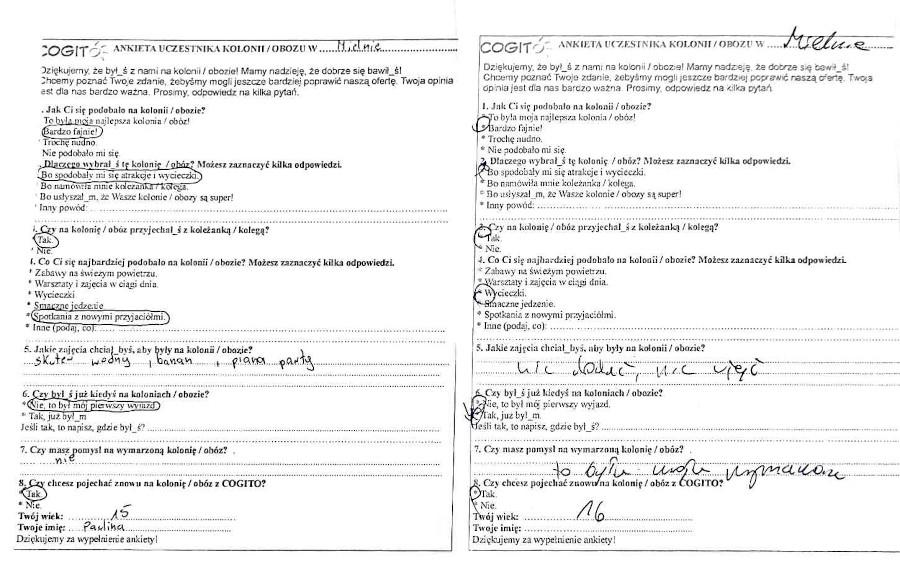 COGITO ANKIETA UCZESTNIKA KOLONII / OBOZU W Mielnie
Dziękujemy, że był_ś z nami na kolonii / obozie! Mamy nadzieję, że dobrze się bawił_ś!
Chcemy poznać Twoje zdanie, żebyśmy mogli jeszcze bardziej poprawić naszą ofertę. Twoja opinia
jest dla nas bardzo ważna. Prosimy, odpowiedz na kilka pytań.
. Jak Ci się podobało na kolonii / obozie?
To była moja najlepsza kolonia / obóz!
Bardzo fajnie!
Trochę nudno.
Nie podobało mi się.
. Dlaczego wybrał_ś tę kolonię / obóz? Możesz zaznaczyć kilka odpowiedzi.
Bo spodobały mi się atrakcje i wycieczki.
Bo namówiła mnie koleżanka / kolega.
Bo usłyszał_m, że Wasze kolonie / obozy są super!
* Inny powód:
. Czy na kolonię / obóz przyjechał_ś z koleżanką / kolegą?
Tak.
* Nie.
4. Co Ci się najbardziej podobało na kolonii / obozie? Możesz zaznaczyć kilka odpowiedzi.
* Zabawy na świeżym powietrzu.
* Warsztaty i zajęcia w ciągi dnia.
* Wycieczki
* Smaczne jedzenie
* Spotkania z nowymi przyjaciółmi.
* Inne (podaj, co):
5. Jakie zajęcia chciał_byś, aby były na kolonii / obozie?
skuter wodny , banan , piana party
6. Czy był_ś już kiedyś na koloniach / obozie?
* Nie, to był mój pierwszy wyjazd
* Tak, już był_m
Jeśli tak, to napisz, gdzie był_ś?
7. Czy masz pomysł na wymarzoną kolonię / obóz?
nie
8. Czy chcesz pojechać znowu na kolonię / obóz z COGITO?
* Tak.
* Nie.
Twój wiek: 15
Twoje imię: Paulina
Dziękujemy za wypełnienie ankiety!
COGITO ANKIETA UCZESTNIKA KOLONII / OBOZU W Mielnie
Dziękujemy, że był_ś z nami na kolonii / obozie! Mamy nadzieję, że dobrze się bawił_ś!
Chcemy poznać Twoje zdanie, żebyśmy mogli jeszcze bardziej poprawić naszą ofertę. Twoja
opinia jest dla nas bardzo ważna. Prosimy, odpowiedz na kilka pytań.
1. Jak Ci się podobało na kolonii / obozie?
* To była moja najlepsza kolonia / obóz!
* Bardzo fajnie!
* Trochę nudno.
* Nie podobało mi się.
2. Dlaczego wybrał_ś tę kolonię / obóz? Możesz zaznaczyć kilka odpowiedzi.
* Bo spodobały mi się atrakcje i wycieczki.
* Bo namówiła mnie koleżanka / kolega.
* Bo usłyszał_m, że Wasze kolonie / obozy są super!
* Inny powód:
3. Czy na kolonię / obóz przyjechał_ś z koleżanką / kolegą?
Tak.
* Nie.
4. Co Ci się najbardziej podobało na kolonii / obozie? Możesz zaznaczyć kilka odpowiedzi.
* Zabawy na świeżym powietrzu.
* Warsztaty i zajęcia w ciągi dnia.
* Wycieczki.
* Smaczne jedzenie.
* Spotkania z nowymi przyjaciółmi.
* Inne (podaj, co):
5. Jakie zajęcia chciał_byś, aby były na kolonii / obozie?
nic dodać, nic ująć
6. Czy był_ś już kiedyś na koloniach / obozie?
* Nie, to był mój pierwszy wyjazd.
* Tak, już był_m.
Jeśli tak, to napisz, gdzie był_ś?
7. Czy masz pomysł na wymarzoną kolonię / obóz?
to była moja wymarzona
8. Czy chcesz pojechać znowu na kolonię / obóz z COGITO?
* Tak.
* Nie.
Twój wiek: 16
Twoje imię:
Dziękujemy za wypełnienie ankiety!